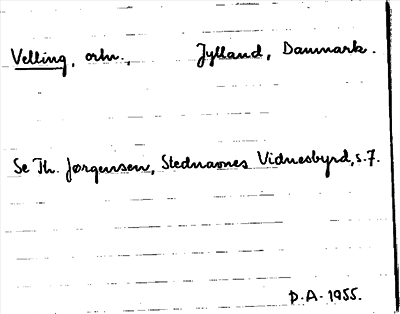 Velling, ortn., Jylland, Danmark.
Se Th. Jørgensen, Stednavnes Vidnesbyrd, s. 7.
D.A. 1955.